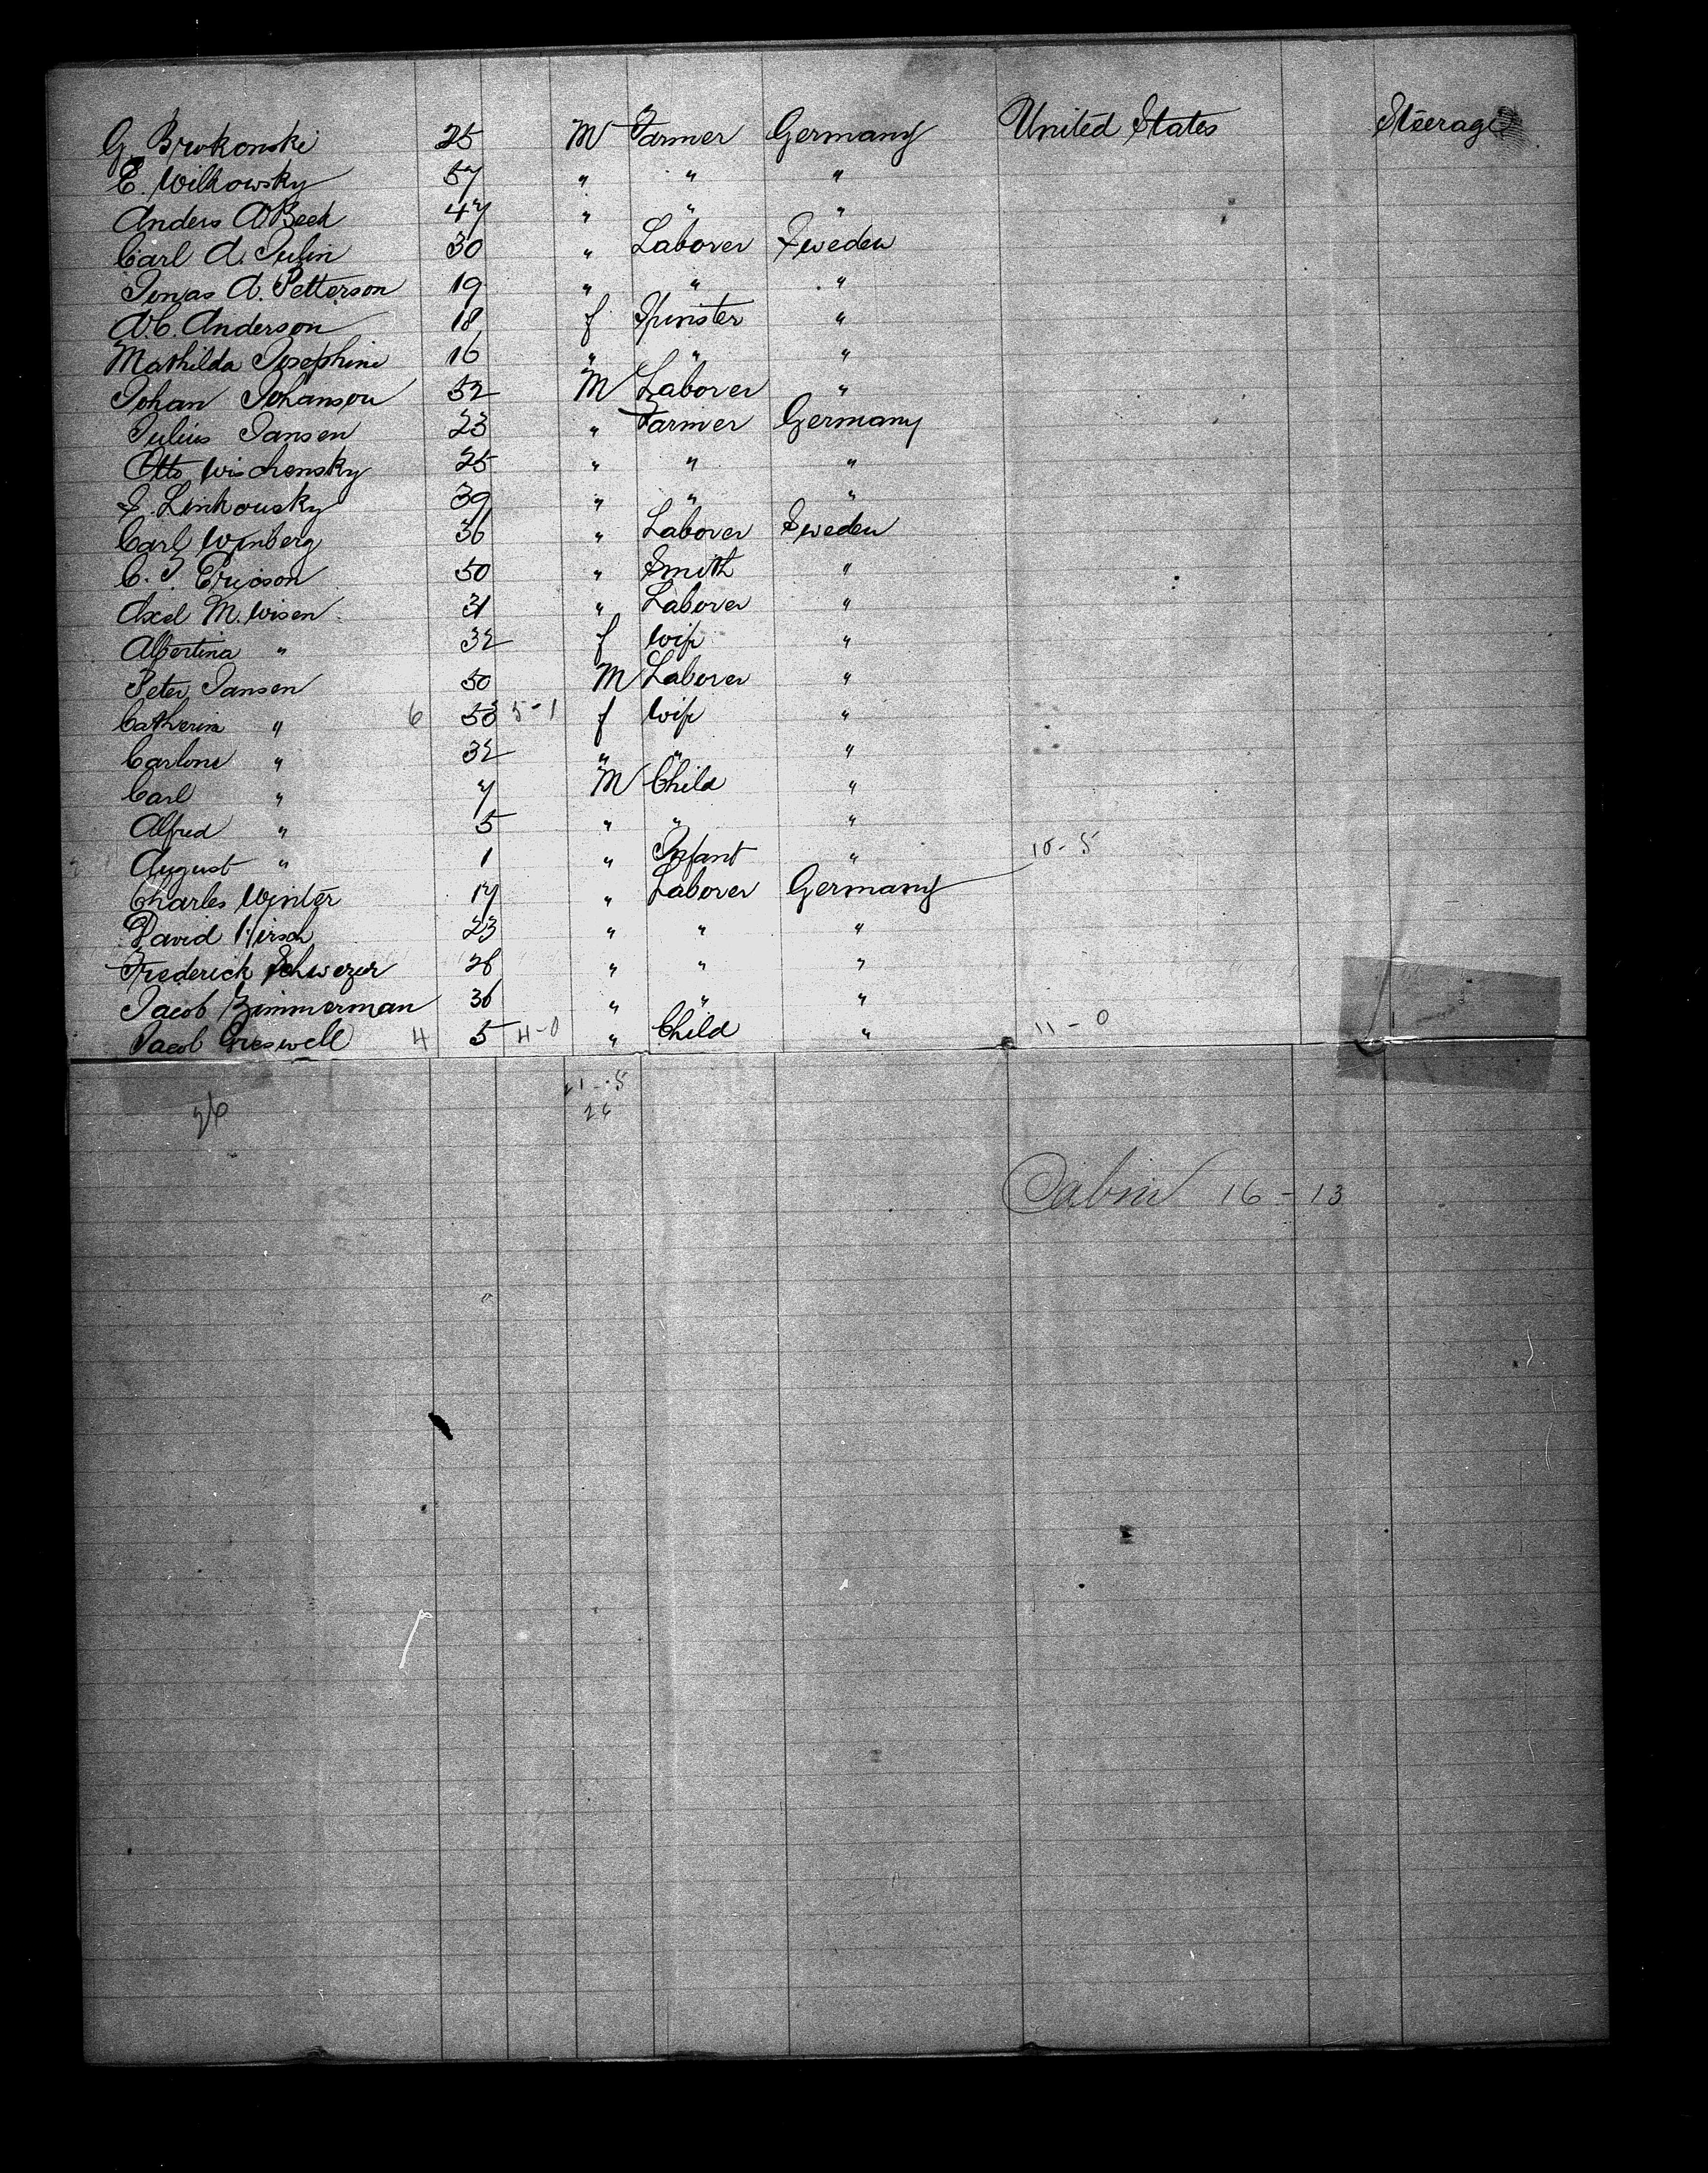 G. Brokonski 25 M Farmer Germany United States Steerage
E. Wilkowsky 57 " " "
Anders A Beck 47 " " "
Carl A. Julin 30 " Laborer Sweden
Jonas A. Petterson 19 " " "
A. C. Anderson 18 f Spinster "
Mathilda Josephine 16 " " "
Johan Johanson 52 M Laborer "
Julius Jansen 23 " Farmer Germany
Otto Wischensky 25 " " "
S. Linkousky 39 " " "
Carl Winberg 36 " Laborer Sweden
C. J. Ericson 50 " Smith "
Axel M. Wisen 31 " Laborer "
Albertina " 32 f Wife "
Peter Jansen 50 M Laborer "
Catherin " 6 53 5-1 f Wife "
Carlone " 32 " " "
Carl " 7 M Child "
Alfred " 5 " " "
August " 1 " Infant " 10-5
Charles Winter 17 " Laborer Germany
David Hirsch 23 " " "
Frederick Schwezer 28 " " "
Jacob Zimmerman 36 " " "
Jacob Greswell 4 5 4-0 " Child " 11-0
21-5
26 26
Cabin 16-13